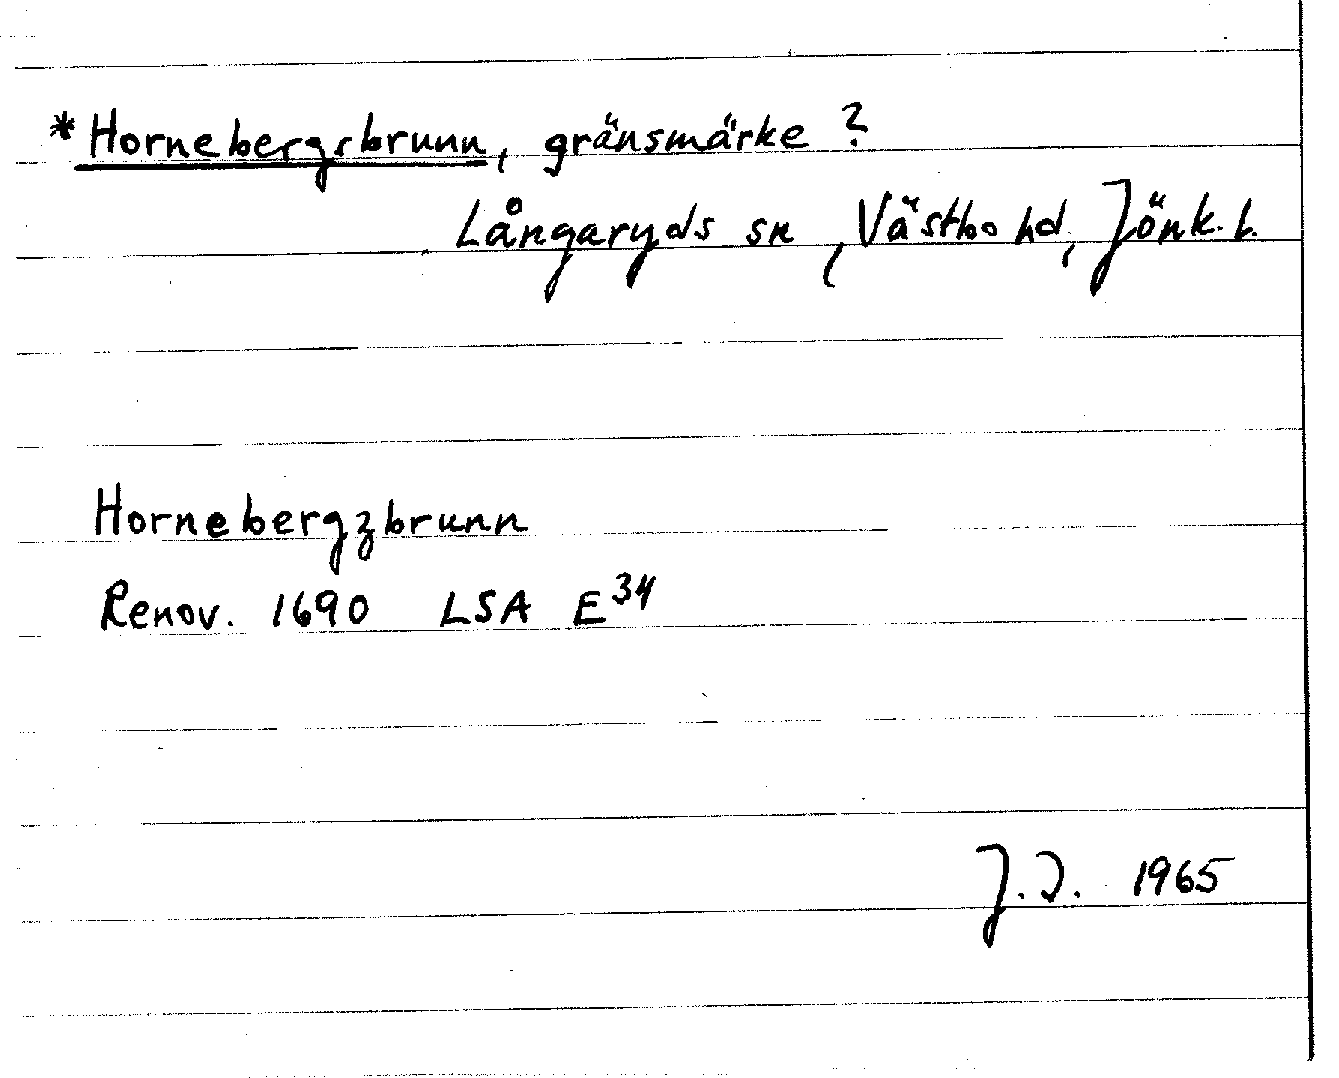 *Hornebergsbrunn, gränsmärke?
Långaryds sn, Västbo hd, Jönk. l.
Hornebergzbrunn
Renov. 1690 LSA E34
J.I. 1965